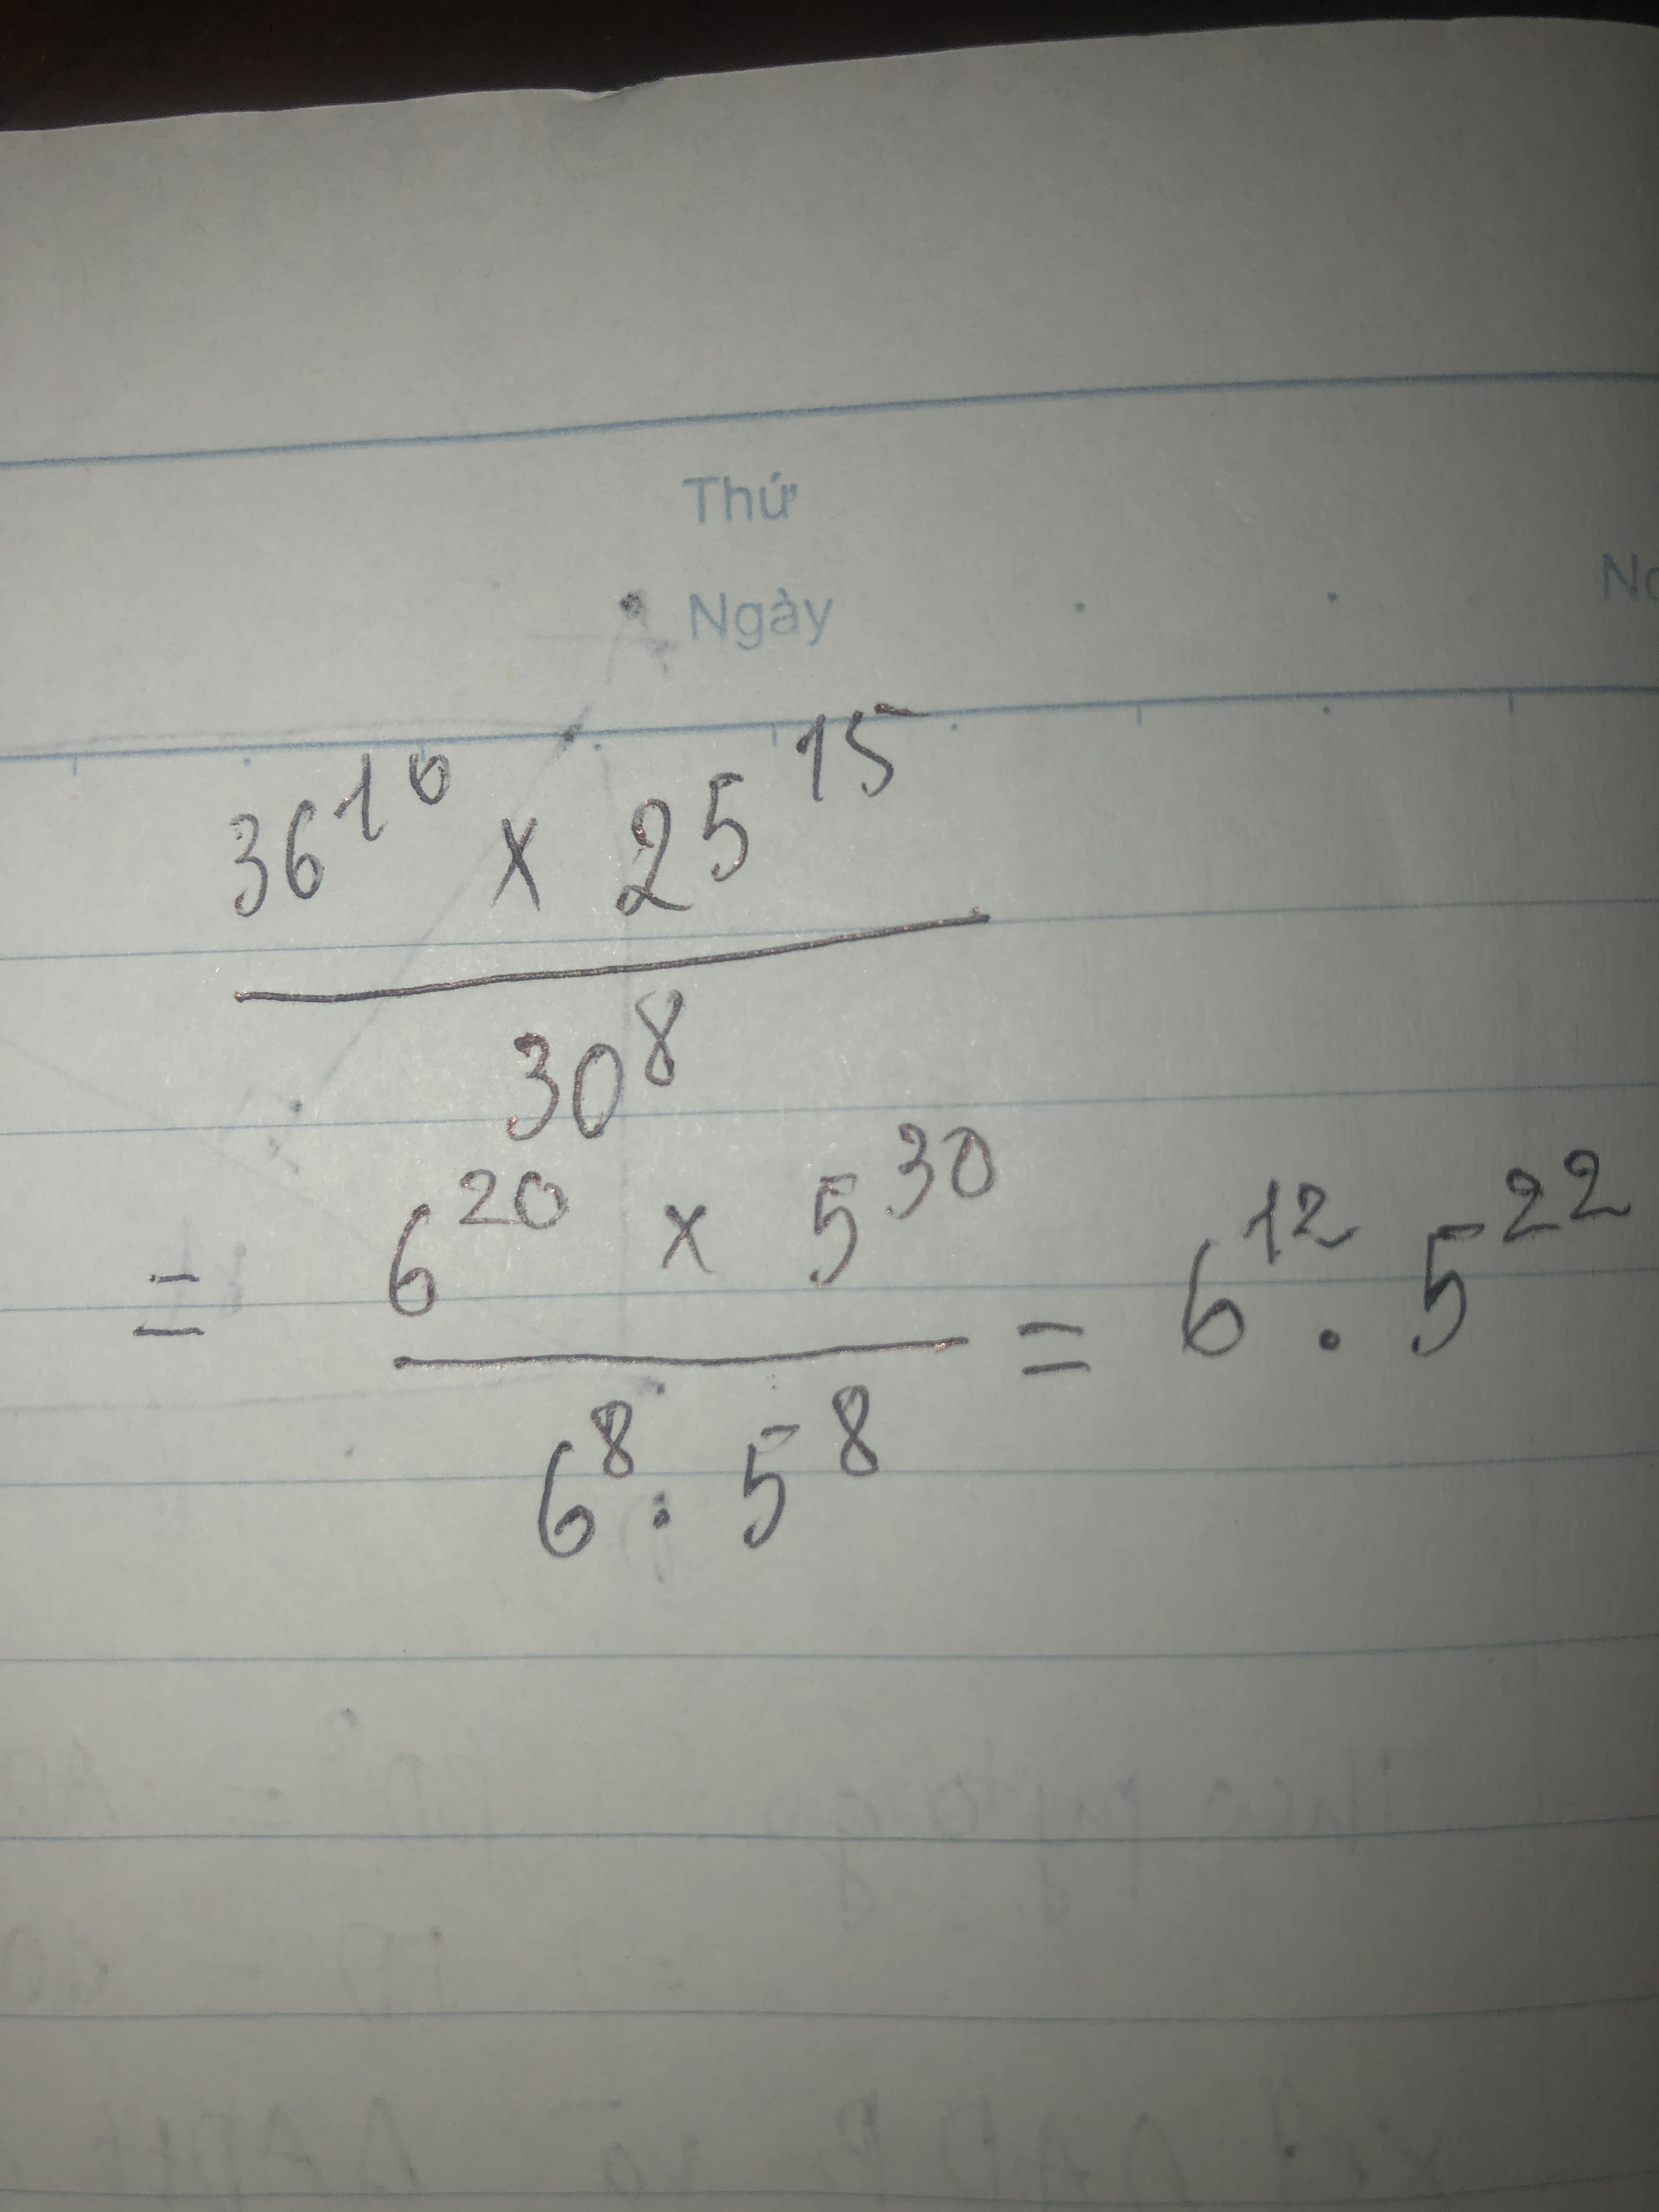 Thứ
Ngày
No
36^10 x 25^15
30^8
= 6^20 x 5^30 / 6^8 . 5^8 = 6^12 . 5^22